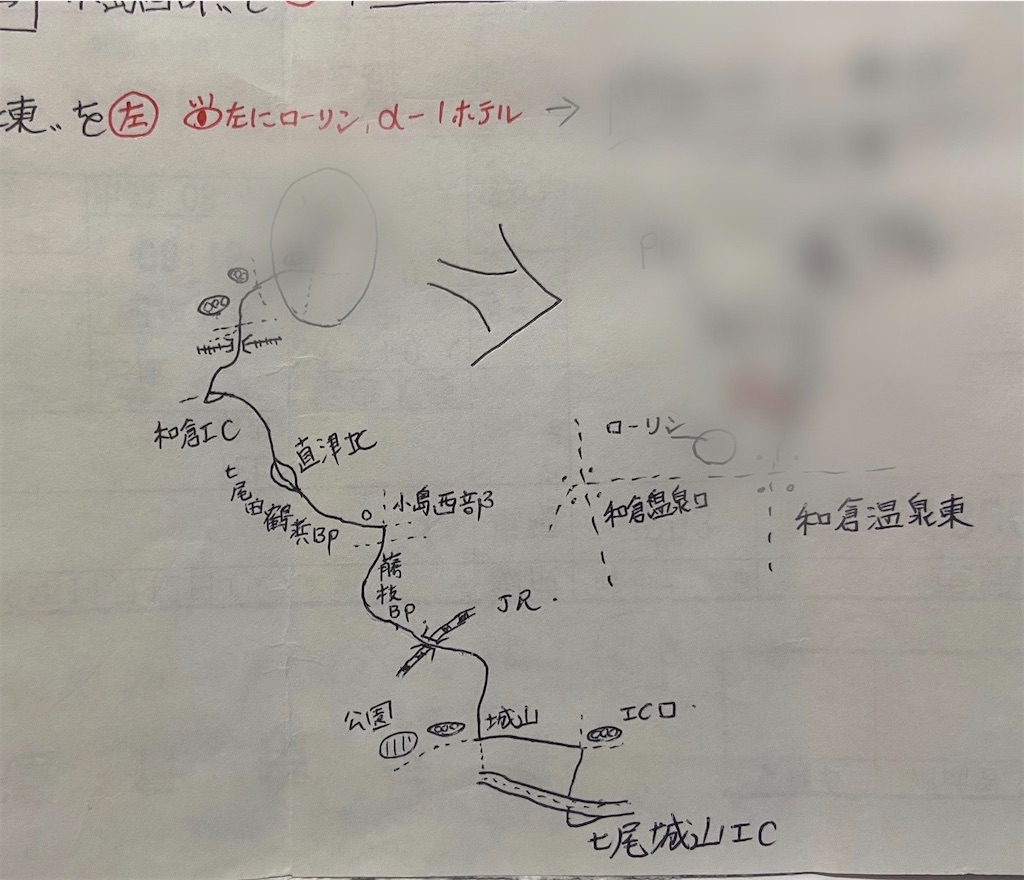 東〟を左 左にローリン, α-1ホテル →
和倉IC
直津北
七尾田鶴浜BP
小島西部
藤枝BP
JR.
公園
城山
IC口.
七尾城山IC
ローリン
和倉温泉口
和倉温泉東